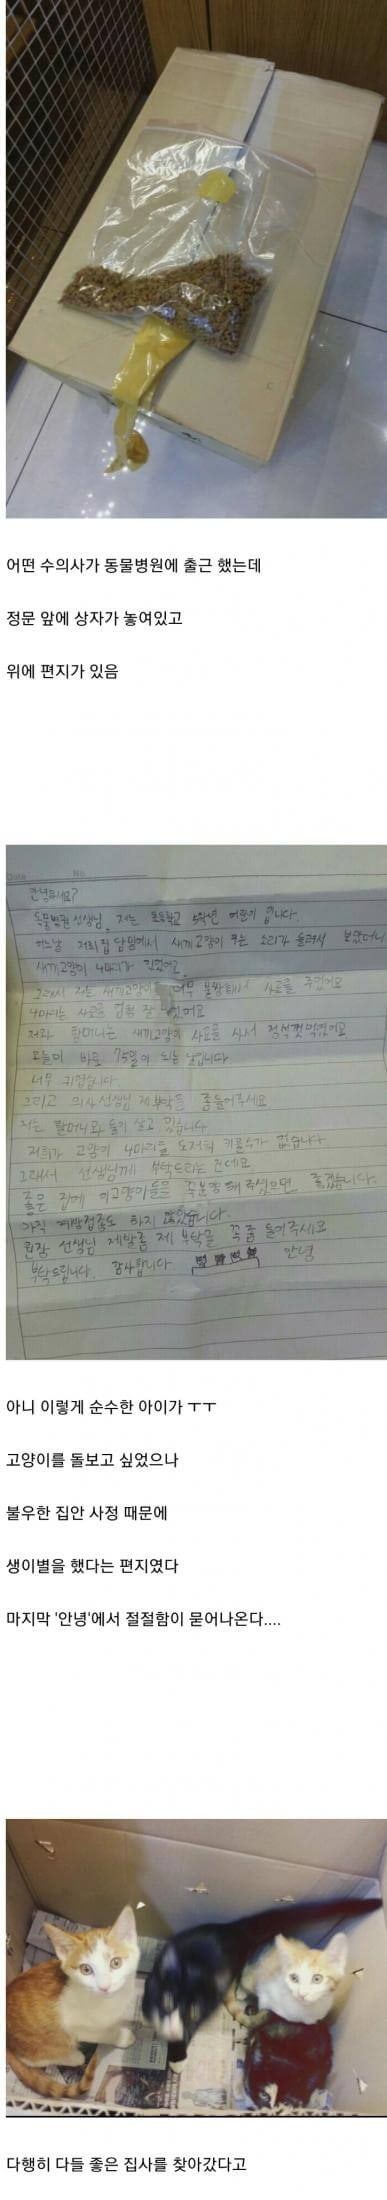 어떤 수의사가 동물병원에 출근 했는데
정문 앞에 상자가 놓여있고
위에 편지가 있음
Date No.
안녕하세요?
동물병원 선생님, 저는 초등학교 5학년 어린이 입니다.
어느날 저희집 담밑에서 새끼고양이 우는 소리가 들려서 보았더니
새끼고양이 4마리가 있었어요.
그래서 저는 새끼고양이 너무 불쌍해서 사료를 주었어요
4마리는 사료를 엄청 잘 먹었어요
저와 할머니는 새끼고양이 사료를 사서 정성껏 먹였어요
오늘이 바로 75일이 되는 날입니다
너무 귀엽습니다.
그리고 의사선생님 제부탁을 좀들어주세요
저는 할머니와 둘이 살고 있습니다
저희가 고양이 4마리를 도저히 키울수가 없습니다
그래서 선생님께 부탁드리는 건데요.
좋은 집에 이고양이들을 꼭분양해 주셨으면 좋겠습니다.
아직 예방접종도 하지 않았습니다.
원장 선생님 제발좀 제 부탁을 꼭좀 들어주세요
부탁드립니다. 감사합니다 안녕
아니 이렇게 순수한 아이가 ㅜㅜ
고양이를 돌보고 싶었으나
불우한 집안 사정 때문에
생이별을 했다는 편지였다
마지막 '안녕'에서 절절함이 묻어나온다....
다행히 다들 좋은 집사를 찾아갔다고